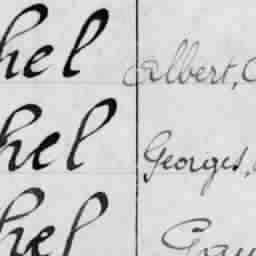 hel Albert, C
hel Georges,
hel